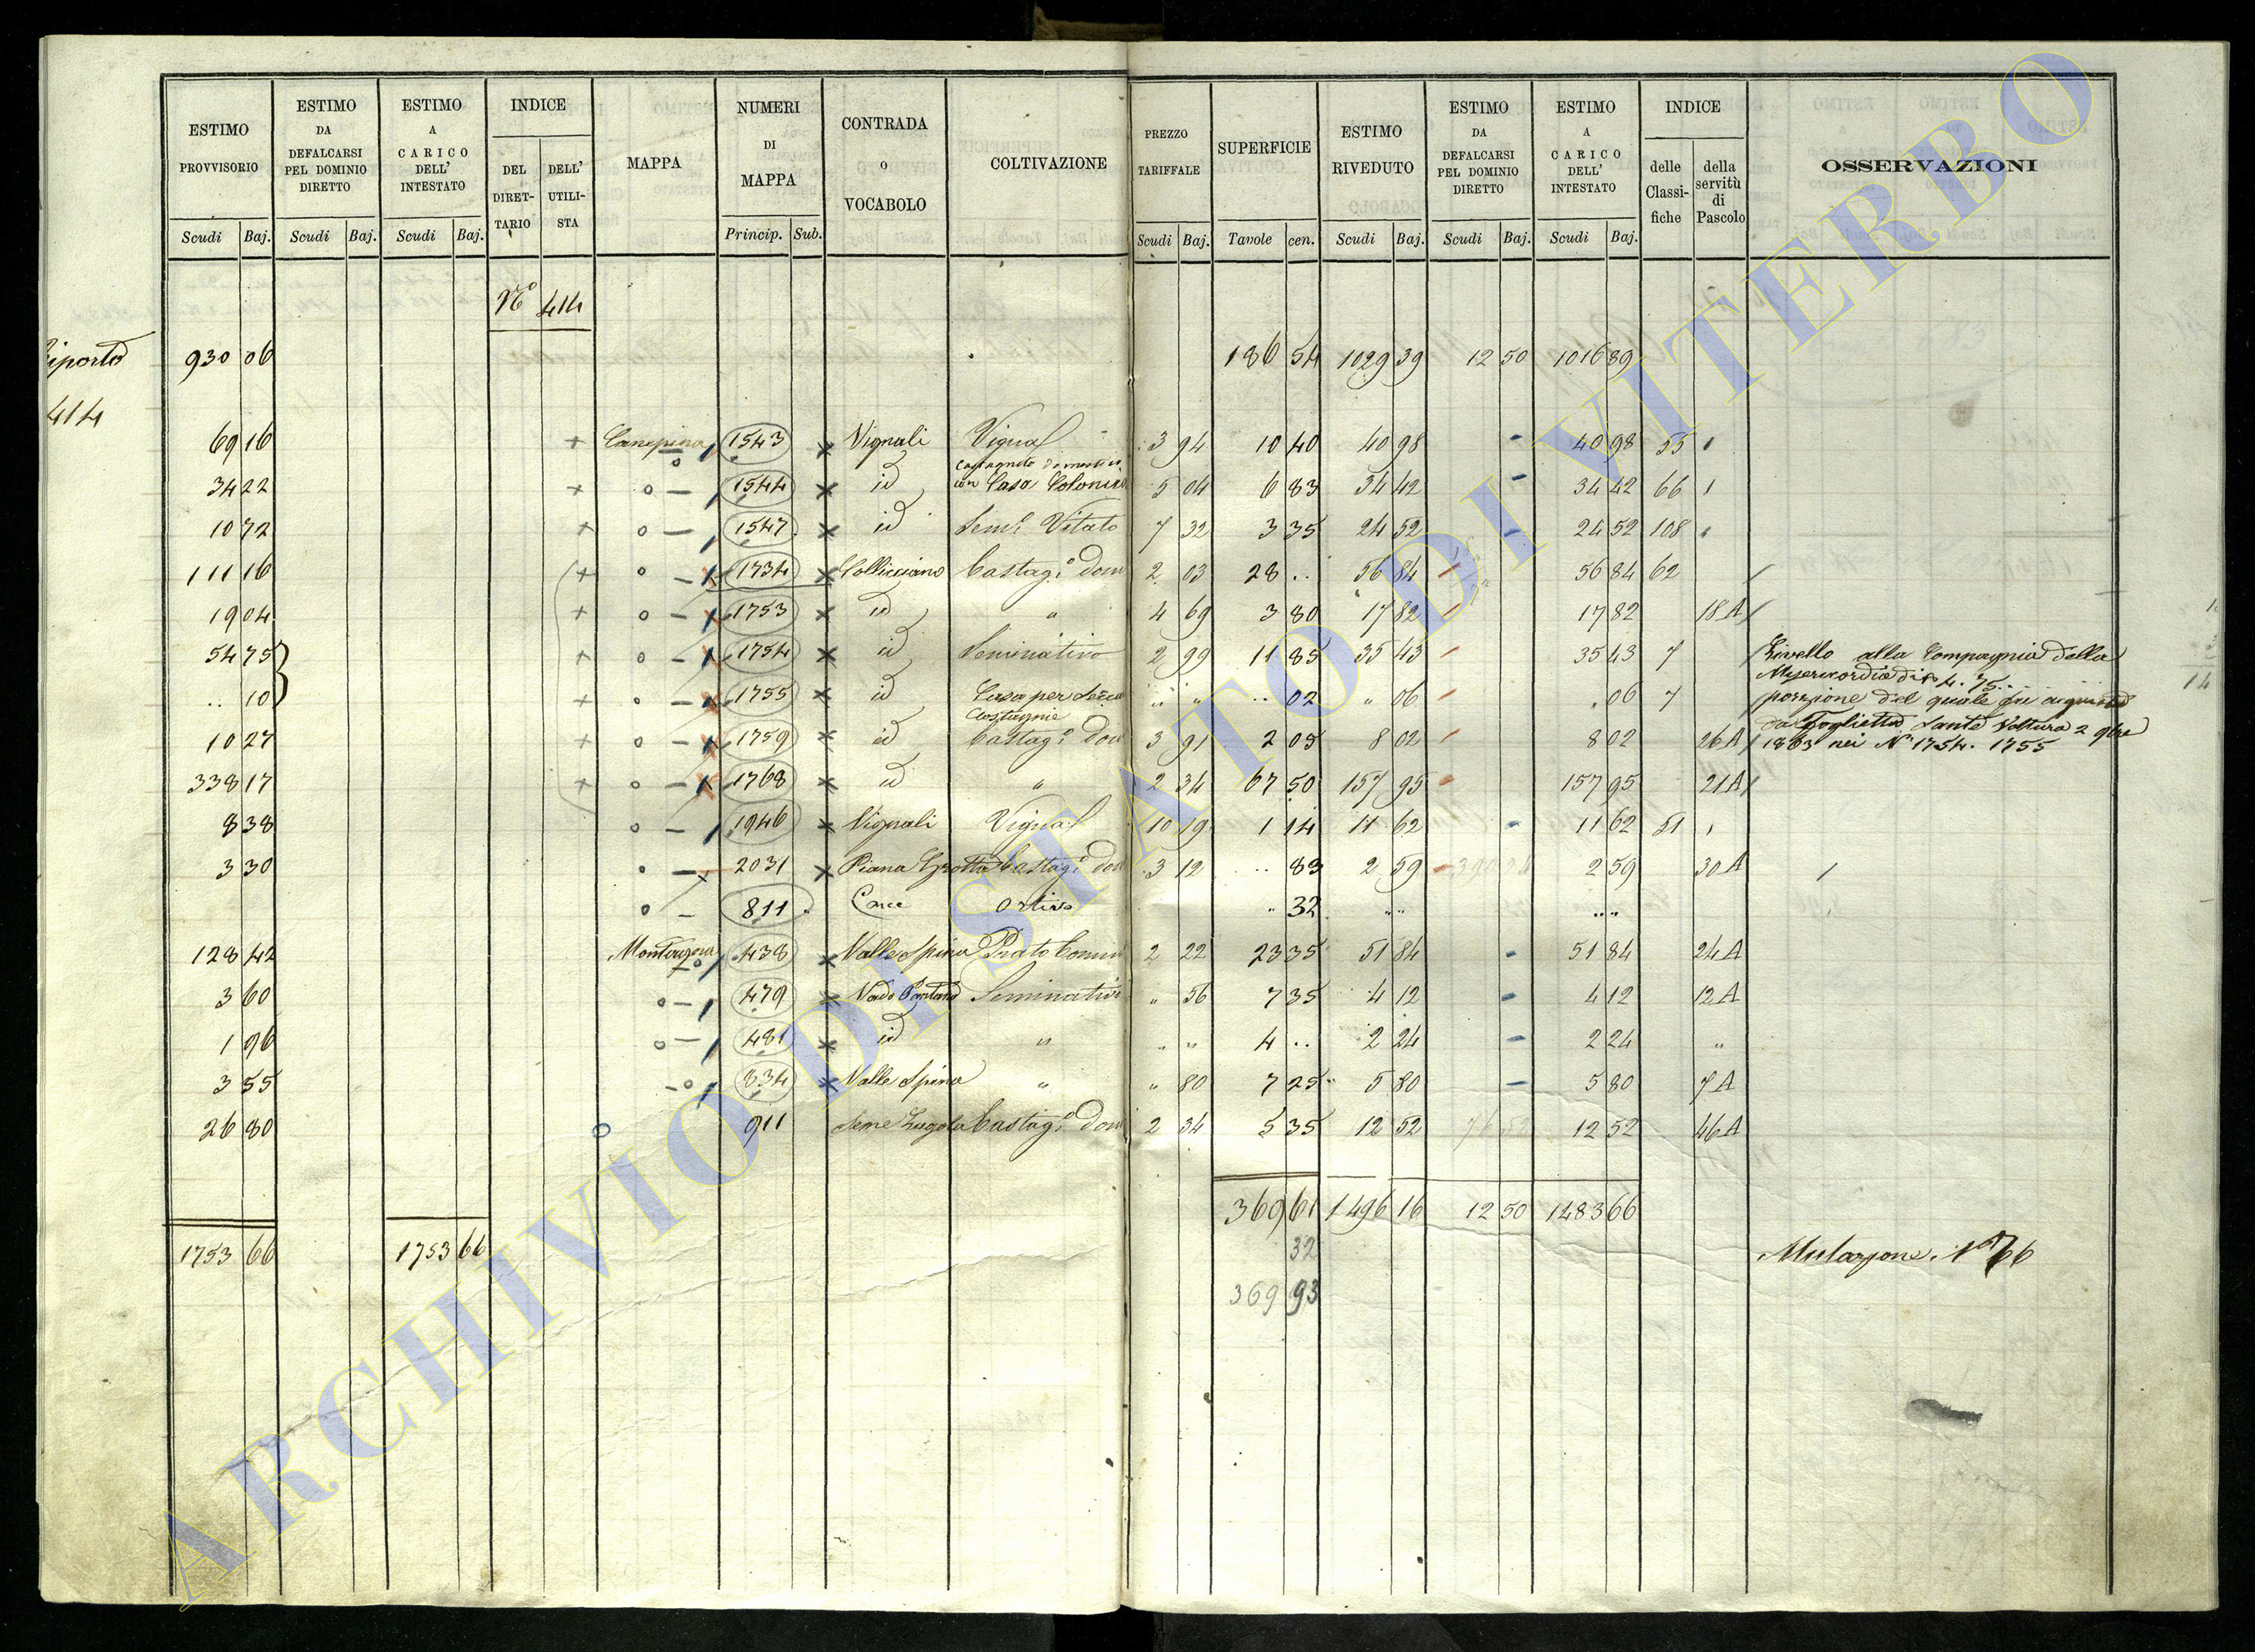 ESTIMO PROVVISORIO | ESTIMO DA DEFALCARSI PEL DOMINIO DIRETTO | ESTIMO A CARICO DELL' INTESTATO | INDICE | MAPPA | NUMERI DI MAPPA | CONTRADA O VOCABOLO | COLTIVAZIONE | PREZZO TARIFFALE | SUPERFICIE | ESTIMO RIVEDUTO | ESTIMO DA DEFALCARSI PEL DOMINIO DIRETTO | ESTIMO A CARICO DELL' INTESTATO | INDICE | OSSERVAZIONI
DEL DIRET-TARIO | DELL' UTILI-STA | delle Classi-fiche | della servitù di Pascolo
Scudi Baj. Scudi Baj. Scudi Baj. Princip. Sub. Scudi Baj. Tavole cen. Scudi Baj. Scudi Baj. Scudi Baj.
No 414
iporto 930 06 186 54 1029 39 12 50 1016 89
414
69 16 + Canepina 1543 Vignali Vignal 3 94 10 40 40 98 - 40 98 55
34 22 + 1544 id Castagneto domestico con Casa Colonica 5 04 6 83 34 42 - 34 42 66
10 72 + 1547 id Semo Vitato 7 32 3 35 24 52 - 24 52 108
111 16 + 1734 Collicciano Castago Dom 2 03 28 .. 56 84 56 84 62
19 04 + 1753 id " 4 69 3 80 17 82 17 82 18 A
54 75 + 1754 id Seminativo 2 99 11 85 35 43 35 43 7 Livello alla Compagnia della
.. 10 + 1755 id Casa per Castagnie " " .. 02 " 06 " 06 7 Misericordia di
porzione del quale fu
10 27 + 1759 id Castago Dom 3 91 2 05 8 02 8 02 26 A da Foglietta Sante Voltura 2
1883 nei No 1754. 1755
338 17 + 1768 id " 2 34 67 50 157 95 157 95 21 A
8 38 1946 Vignali Vignal 10 19 1 14 11 62 - 11 62 51
3 30 2031 Piana Grotta Castago dom 3 12 .. 83 2 59 2 59 30 A
811 Ortivo " 32
128 42 438 Valle Spina Prato 2 22 23 35 51 84 - 51 84 24 A
3 60 479 Seminativo " 56 7 35 4 12 - 4 12 12 A
1 96 481 id " " " 4 .. 2 24 - 2 24 "
3 55 834 Valle Spina " " 80 7 25 5 80 - 5 80 7 A
26 80 911 Castago Dom 2 34 5 35 12 52 12 52 46 A
369 61 1496 16 12 50 1483 66
1753 66 1753 66 32 Mutazione No 66
369 93
ARCHIVIO DI STATO DI VITERBO